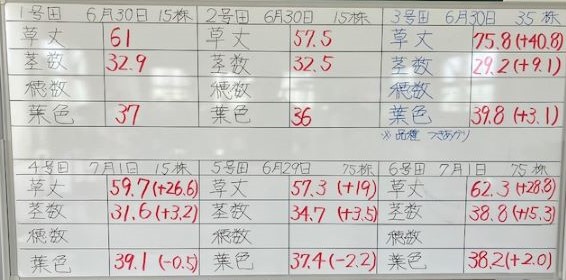 1号田 6月30日 15株
草丈 61
茎数 32.9
穂数
葉色 37
2号田 6月30日 15株
草丈 57.5
茎数 32.5
穂数
葉色 36
3号田 6月30日 35株
草丈 75.8(+40.8)
茎数 29.2(+9.1)
穂数
葉色 39.8(+3.1)
4号田 7月1日 15株
草丈 59.7(+26.6)
茎数 31.6(+3.2)
穂数
葉色 39.1(-0.5)
5号田 6月29日 75株
草丈 57.3(+19)
茎数 34.7(+3.5)
穂数
葉色 37.4(-2.2)
6号田 7月1日 75株
草丈 62.3(+28.8)
茎数 38.8(+15.3)
穂数
葉色 38.2(+2.0)